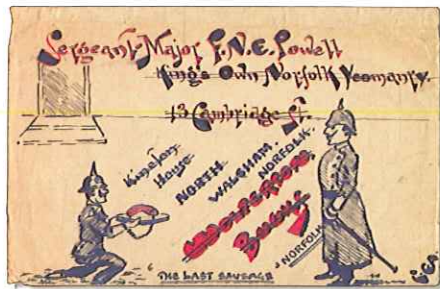 Sergeant-Major F.N.E. Powell
King's Own Norfolk Yeomanry.
13 Cambridge St.
Kimston House
NORTH WALSHAM.
NORFOLK.
NORFOLK
"THE LAST SAUSAGE